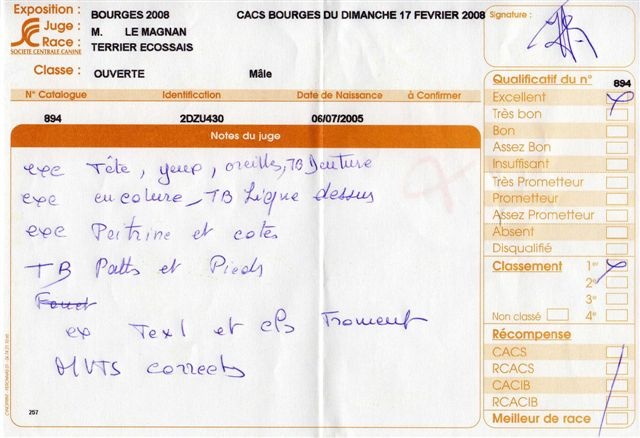 Exposition : BOURGES 2008 CACS BOURGES DU DIMANCHE 17 FEVRIER 2008
Juge : M. LE MAGNAN
Race : TERRIER ECOSSAIS
SOCIETE CENTRALE CANINE
Classe : OUVERTE Mâle
N° Catalogue Identification Date de Naissance à Confirmer
894 2DZU430 06/07/2005
Notes du juge
exc Tête, yeux, oreilles, TB Denture
exc encolure, TB Ligne dessus
exc Poitrine et cotes
TB Patts et Pieds
Fouet
ex Text et cls Froment
MVTS corrects
257
Signature :
Qualificatif du n° 894
Excellent
Très bon
Bon
Assez Bon
Insuffisant
Très Prometteur
Prometteur
Assez Prometteur
Absent
Disqualifié
Classement 1er
2e
3e
Non classé 4e
Récompense
CACS
RCACS
CACIB
RCACIB
Meilleur de race